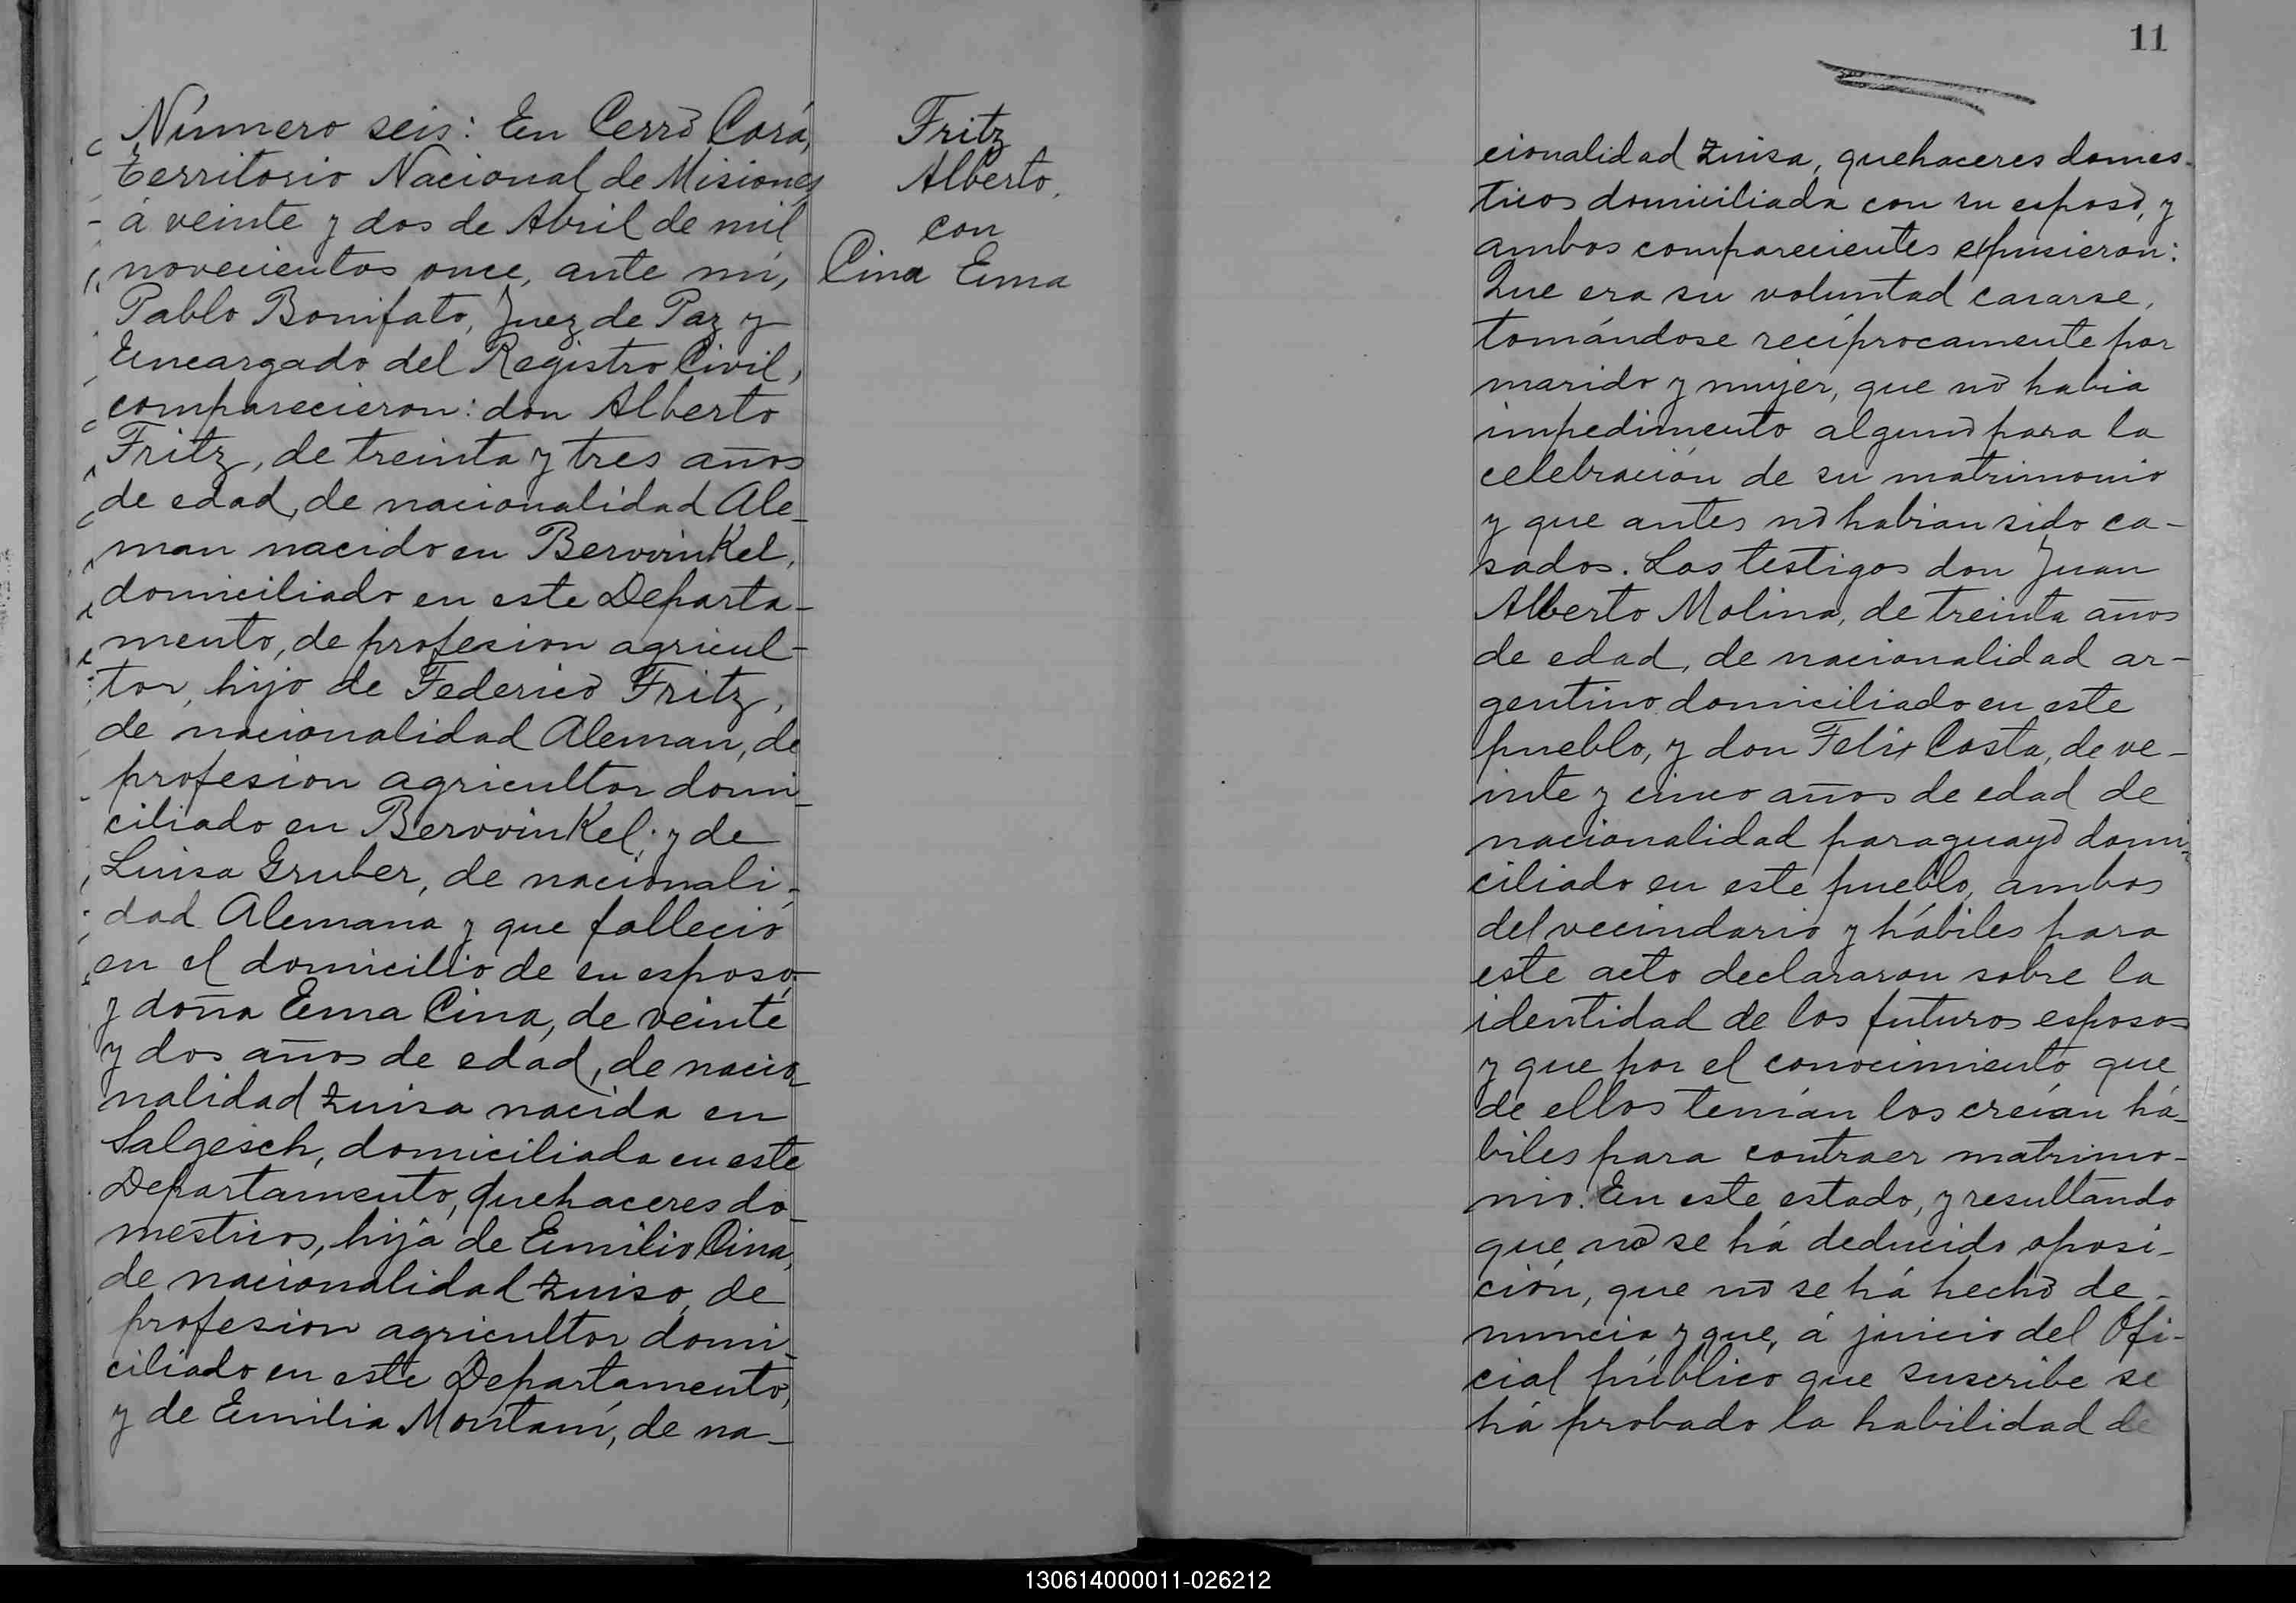 Número seis: En Cerro Corá,
territorio Nacional de Misiones
á veinte y dos de Abril de mil
novecientos once, ante mi,
Pablo Bonifato, Juez de Paz y
Encargado del Registro Civil,
comparecieron: don Alberto
Fritz, de treinta y tres años
de edad, de nacionalidad Ale-
man nacido en Bervvinkel,
domiciliado en este Departa-
mento, de profesion agricul-
tor, hijo de Federico Fritz,
de nacionalidad Aleman, de
profesion agricultor domi-
ciliado en BervvinKel; y de
Luisa Gruber, de nacionali-
dad Alemana y que falleció
en el domicilio de su esposo,
y doña Ema Cina, de veinte
y dos años de edad, de nacio-
nalidad zuisa nacida en
Salgesch, domiciliada en este
Departamento, quehaceres do-
mesticos, hija de Emilio Cina,
de nacionalidad zuiso, de
profesion agricultor domi-
ciliado en este Departamento,
y de Emilia Montani, de na-
Fritz
Alberto.
con
Cina Ema
11
cionalidad zuisa, quehaceres domes-
ticos domiciliada con su esposo, y
ambos comparecientes expusieron:
Que era su voluntad casarse,
tomándose recíprocamente por
marido y mujer, que no habia
impedimento alguno para la
celebración de su matrimonio
y que antes no habian sido ca-
sados. Los testigos don Juan
Alberto Molina, de treinta años
de edad, de nacionalidad ar-
gentino domiciliado en este
pueblo, y don Felix Costa, de ve-
inte y cinco años de edad de
nacionalidad paraguayo domi-
ciliado en este pueblo, ambos
del vecindario y hábiles para
este acto declararon sobre la
identidad de los futuros esposos
y que por el conocimiento que
de ellos tenían los creían há-
biles para contraer matrimo-
nio. En este estado, y resultando
que no se há deducido oposi-
ción, que no se há hecho de-
nuncia y que, á juicio del Ofi-
cial público que suscribe se
há probado la habilidad de
130614000011-026212